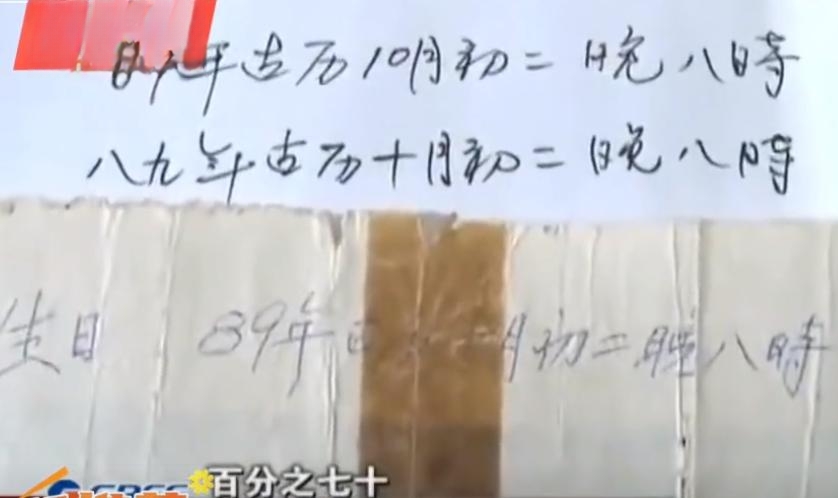 89年古历10月初二 晚八時
八九年古历十月初二晚八時
生日 89年 月初二晚八時
百分之七十